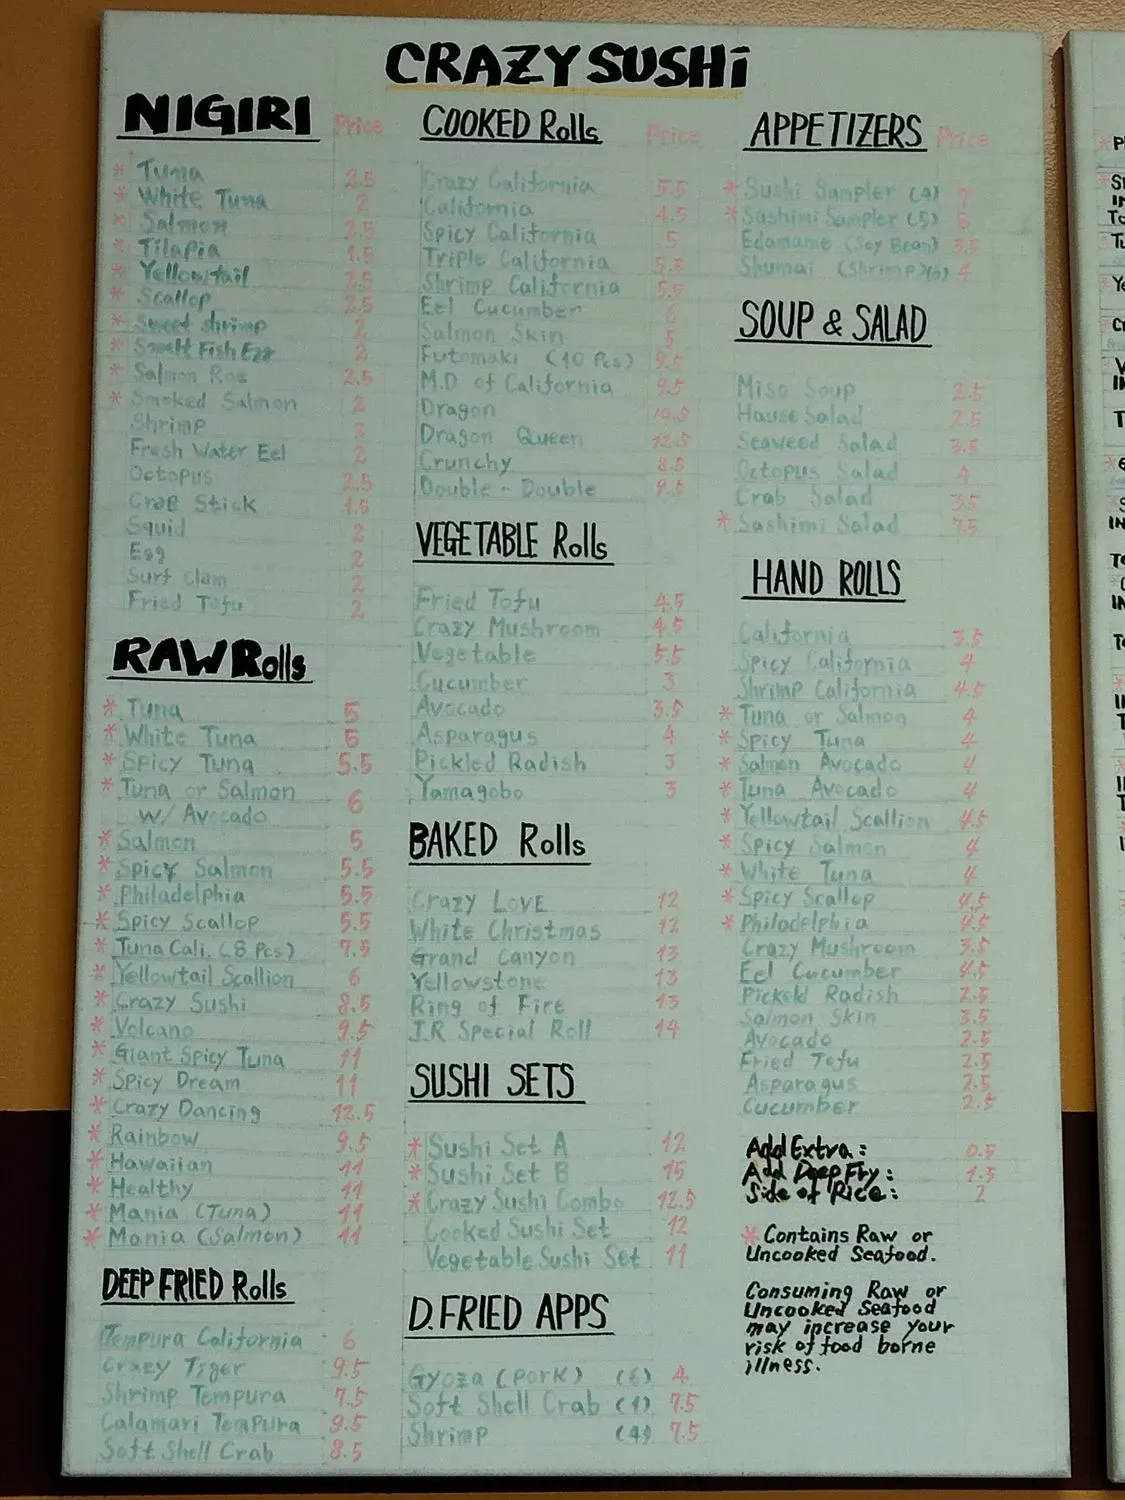 CRAZY SUSHI
NIGIRI Price
* Tuna 2.5
* White Tuna 2
* Salmon 2.5
* Tilapia 1.5
* Yellowtail 2.5
* Scallop 2.5
* Sweet shrimp 2
* Smelt Fish Egg 2
* Salmon Roe 2.5
* Smoked Salmon 2
Shrimp 2
Fresh Water Eel 2
Octopus 2.5
Crab Stick 1.5
Squid 2
Egg 2
Surf clam 2
Fried Tofu 2
RAW Rolls
* Tuna 5
* White Tuna 5
* Spicy Tuna 5.5
* Tuna or Salmon
w/ Avocado 6
* Salmon 5
* Spicy Salmon 5.5
* Philadelphia 5.5
* Spicy Scallop 5.5
* Tuna Cali. (8 Pcs) 7.5
* Yellowtail Scallion 6
* Crazy Sushi 8.5
* Volcano 9.5
* Giant Spicy Tuna 11
* Spicy Dream 11
* Crazy Dancing 12.5
* Rainbow 9.5
* Hawaiian 11
* Healthy 11
* Mania (Tuna) 11
* Mania (Salmon) 11
DEEP FRIED Rolls
Tempura California 6
Crazy Tiger 9.5
Shrimp Tempura 7.5
Calamari Tempura 9.5
Soft Shell Crab 8.5
COOKED Rolls Price
Crazy California 5.5
California 4.5
Spicy California 5
Triple California 5.5
Shrimp California 5.5
Eel Cucumber 6
Salmon Skin 5
Futomaki (10 Pcs) 9.5
M.D of California 9.5
Dragon 10.5
Dragon Queen 12.5
Crunchy 8.5
Double - Double 9.5
VEGETABLE Rolls
Fried Tofu 4.5
Crazy Mushroom 4.5
Vegetable 5.5
Cucumber 3
Avocado 3.5
Asparagus 4
Pickled Radish 3
Yamagobo 3
BAKED Rolls
Crazy LOVE 12
White Christmas 12
Grand Canyon 13
Yellowstone 13
Ring of Fire 13
J.R Special Roll 14
SUSHI SETS
* Sushi Set A 12
* Sushi Set B 15
* Crazy Sushi Combo 12.5
Cooked Sushi Set 12
Vegetable Sushi Set 11
D.FRIED APPS
Gyoza (Pork) (6) 4
Soft Shell Crab (1) 7.5
Shrimp (4) 7.5
APPETIZERS Price
* Sushi Sampler (4) 7
* Sashimi Sampler (5)
Edamame (Soy Bean) 3.5
Shumai (Shrimp) 4
SOUP & SALAD
Miso Soup 2.5
House Salad 2.5
Seaweed Salad 3.5
Octopus Salad 4
Crab Salad 3.5
* Sashimi Salad 7.5
HAND ROLLS
California 3.5
Spicy California 4
Shrimp California 4.5
* Tuna or Salmon 4
* Spicy Tuna 4
* Salmon Avocado 4
* Tuna Avocado 4
* Yellowtail Scallion 4.5
* Spicy Salmon 4
* White Tuna 4
* Spicy Scallop 4.5
* Philadelphia 4.5
Crazy Mushroom 3.5
Eel Cucumber 4.5
Pickeld Radish 2.5
Salmon Skin 3.5
Avocado 2.5
Fried Tofu 2.5
Asparagus 2.5
Cucumber 2.5
Add Extra: 0.5
Add Deep Fry: 1.5
Side of Rice: 2
* Contains Raw or
Uncooked Seafood.
Consuming Raw or
Uncooked Seafood
may increase your
risk of food borne
illness.